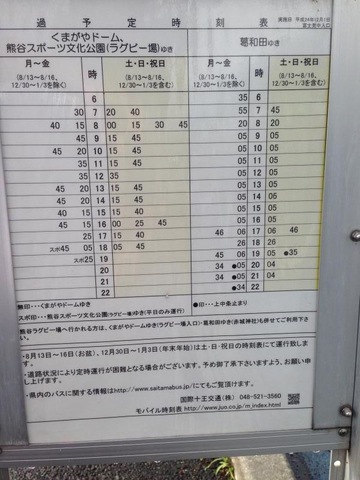 過 予 定 時 刻 表
実施日 平成24年12月1日
くまがやドーム、
熊谷スポーツ文化公園(ラグビー場)ゆき 葛和田ゆき
月～金 時 土・日・祝日 月～金 時 土・日・祝日
(8/13～8/16、 (8/13～8/16、 (8/13～8/16、 (8/13～8/16、
12/30～1/3を除く) 12/30～1/3を含む) 12/30～1/3を除く) 12/30～1/3を含む)
6 35 6
30 7 20 40 55 7 45
40 15 8 00 15 30 45 05 8 05
45 20 9 15 45 05 9 05
45 20 10 15 45 05 10 05
45 20 11 15 45 05 11 05
35 12 35 05 12 05
45 20 13 15 45 05 13 05
45 20 14 15 45 05 14 05
40 15 15 15 45 05 15 05
45 16 00 25 45 05 16 05
25 17 15 40 46 06 17 06 46
スポ45 05 18 05 45 46 28 18 26
スポ25 19 45 20 06 19 05 ●35
20 34 ●05 20 04
21 34 ●05 21 04
22 ●34 22
無印・・・くまがやドームゆき ●印・・・上中条止まり
スポ印・・・熊谷スポーツ文化公園(ラグビー場)ゆき(平日のみ運行)
熊谷ラグビー場へ行かれる方は、くまがやドームゆき(ラグビー場入口)・葛和田ゆき(非城神社)も併せてご利用下さい。
・8月13日～16日(お盆)、12月30日～1月3日(年末年始)は土・日・祝日の時刻表にて運行致します。
・道路状況により定時運行が困難となる場合がございます。予め御了承下さいますよう、お願い申し上げます。
・県内のバスに関する情報はhttp://www.saitamabus.jp/にてもご覧頂けます。
国際十王交通(株) 048-521-3560
モバイル時刻表 http://www.juo.co.jp/m_index.html